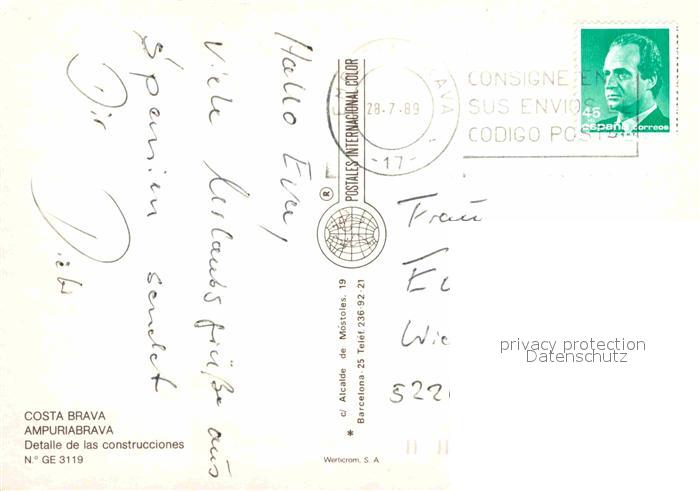 Hallo Eva,
Viele Urlaubsgrüße aus
Spanien sendet
Dir
COSTA BRAVA
AMPURIABRAVA
Detalle de las construcciones
N.º GE 3119
POSTALES INTERNACIONAL COLOR
®
* c/ Alcalde de Móstoles, 19
Barcelona-25 Teléf. 236-92-21
Werticrom, S. A.
BRAVA
28-7-89
-17-
CONSIGNE EN
SUS ENVIOS
CODIGO POSTAL
45
españa correos
Frau
522
privacy protection
Datenschutz